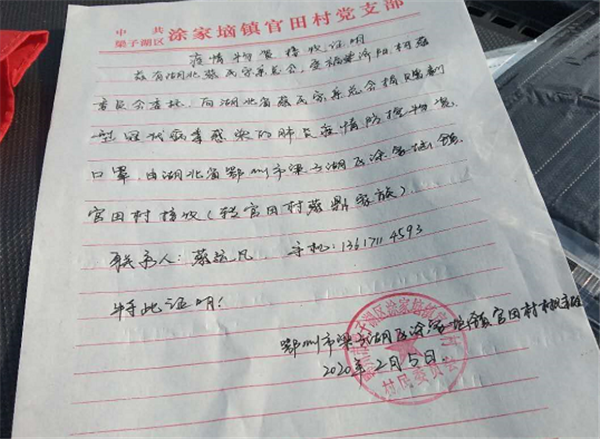 中共
梁子湖区 涂家垴镇官田村党支部
疫情物资接收证明
兹有湖北蔡氏宗亲总会,受福建济阳柯蔡
委员会委托,向湖北省蔡氏宗亲总会捐赠新
型冠状病毒感染的肺炎疫情防控物资,
口罩,由湖北省鄂州市梁子湖区涂家垴镇
官田村接收(转官田村蔡鼎家族)。
联系人:蔡 凡 手机:136171 4593
特此证明!
鄂州市梁子湖区涂家垴镇官田村村委
2020年2月5日
村民委员会